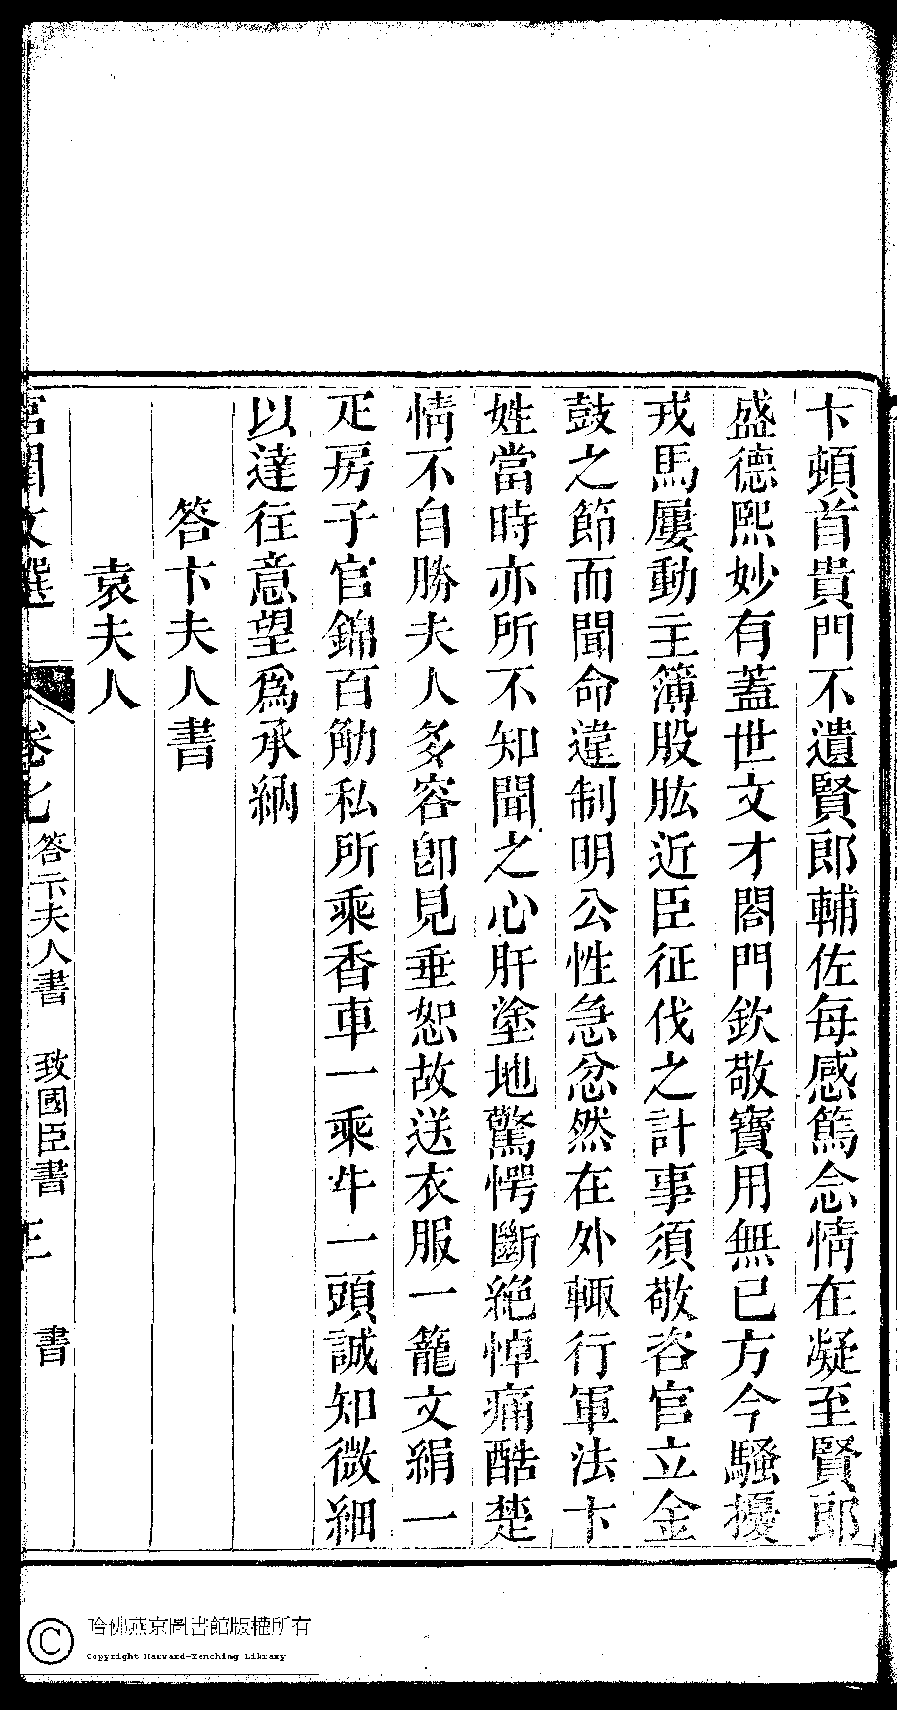 卞頓首貴門不遺賢郎輔佐每感篤念情在凝至賢郎
盛德熙妙有蓋世文才閤門欽敬寶用無已方今騷擾
戎馬屢動主簿股肱近臣征伐之計事須敬咨官立金
鼓之節而聞命違制明公性急忿然在外輙行軍法卞
姓當時亦所不知聞之心肝塗地驚愕斷絶悼痛酷楚
情不自勝夫人多容卽見垂恕故送衣服一籠文絹一
疋房子官錦百觔私所乘香車一乘牛一頭誠知微細
以達往意望爲承納
答卞夫人書
袁夫人
宮閨文選 卷七 答卞夫人書 致國臣書 書
哈佛燕京圖書館版權所有
Copyright Harvard-Yenching Library